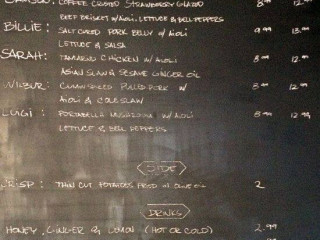 COFFEE CRUSTED STRAWBERRY GLAZED 8.99 12.99
BEEF BRISKET W/ AIOLI, LETTUCE & BELL PEPPERS
BILLIE: SALT CURED PORK BELLY W/ AIOLI 9.99 13.99
LETTUCE & SALSA
SARAH: TAMARIND CHICKEN W/ AIOLI 8.99 12.99
ASIAN SLAW & SESAME GINGER OIL
WILBUR: CUMIN SPICED PULLED PORK W/ 8.99 12.99
AIOLI & COLESLAW
LUIGI: PORTABELLA MUSHROOM W/ AIOLI 8.99 12.99
LETTUCE & BELL PEPPERS
SIDE
CRISP: THIN CUT POTATOES FRIED IN OLIVE OIL 2
DRINKS
HONEY, GINGER & LEMON (HOT OR COLD) 2.99